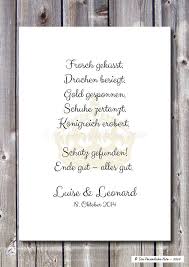 Frosch geküsst,
Drachen besiegt,
Gold gesponnen,
Schuhe zertanzt,
Königreich erobert,
Schatz gefunden!
Ende gut – alles gut.
Luise & Leonard
18. Oktober 2014